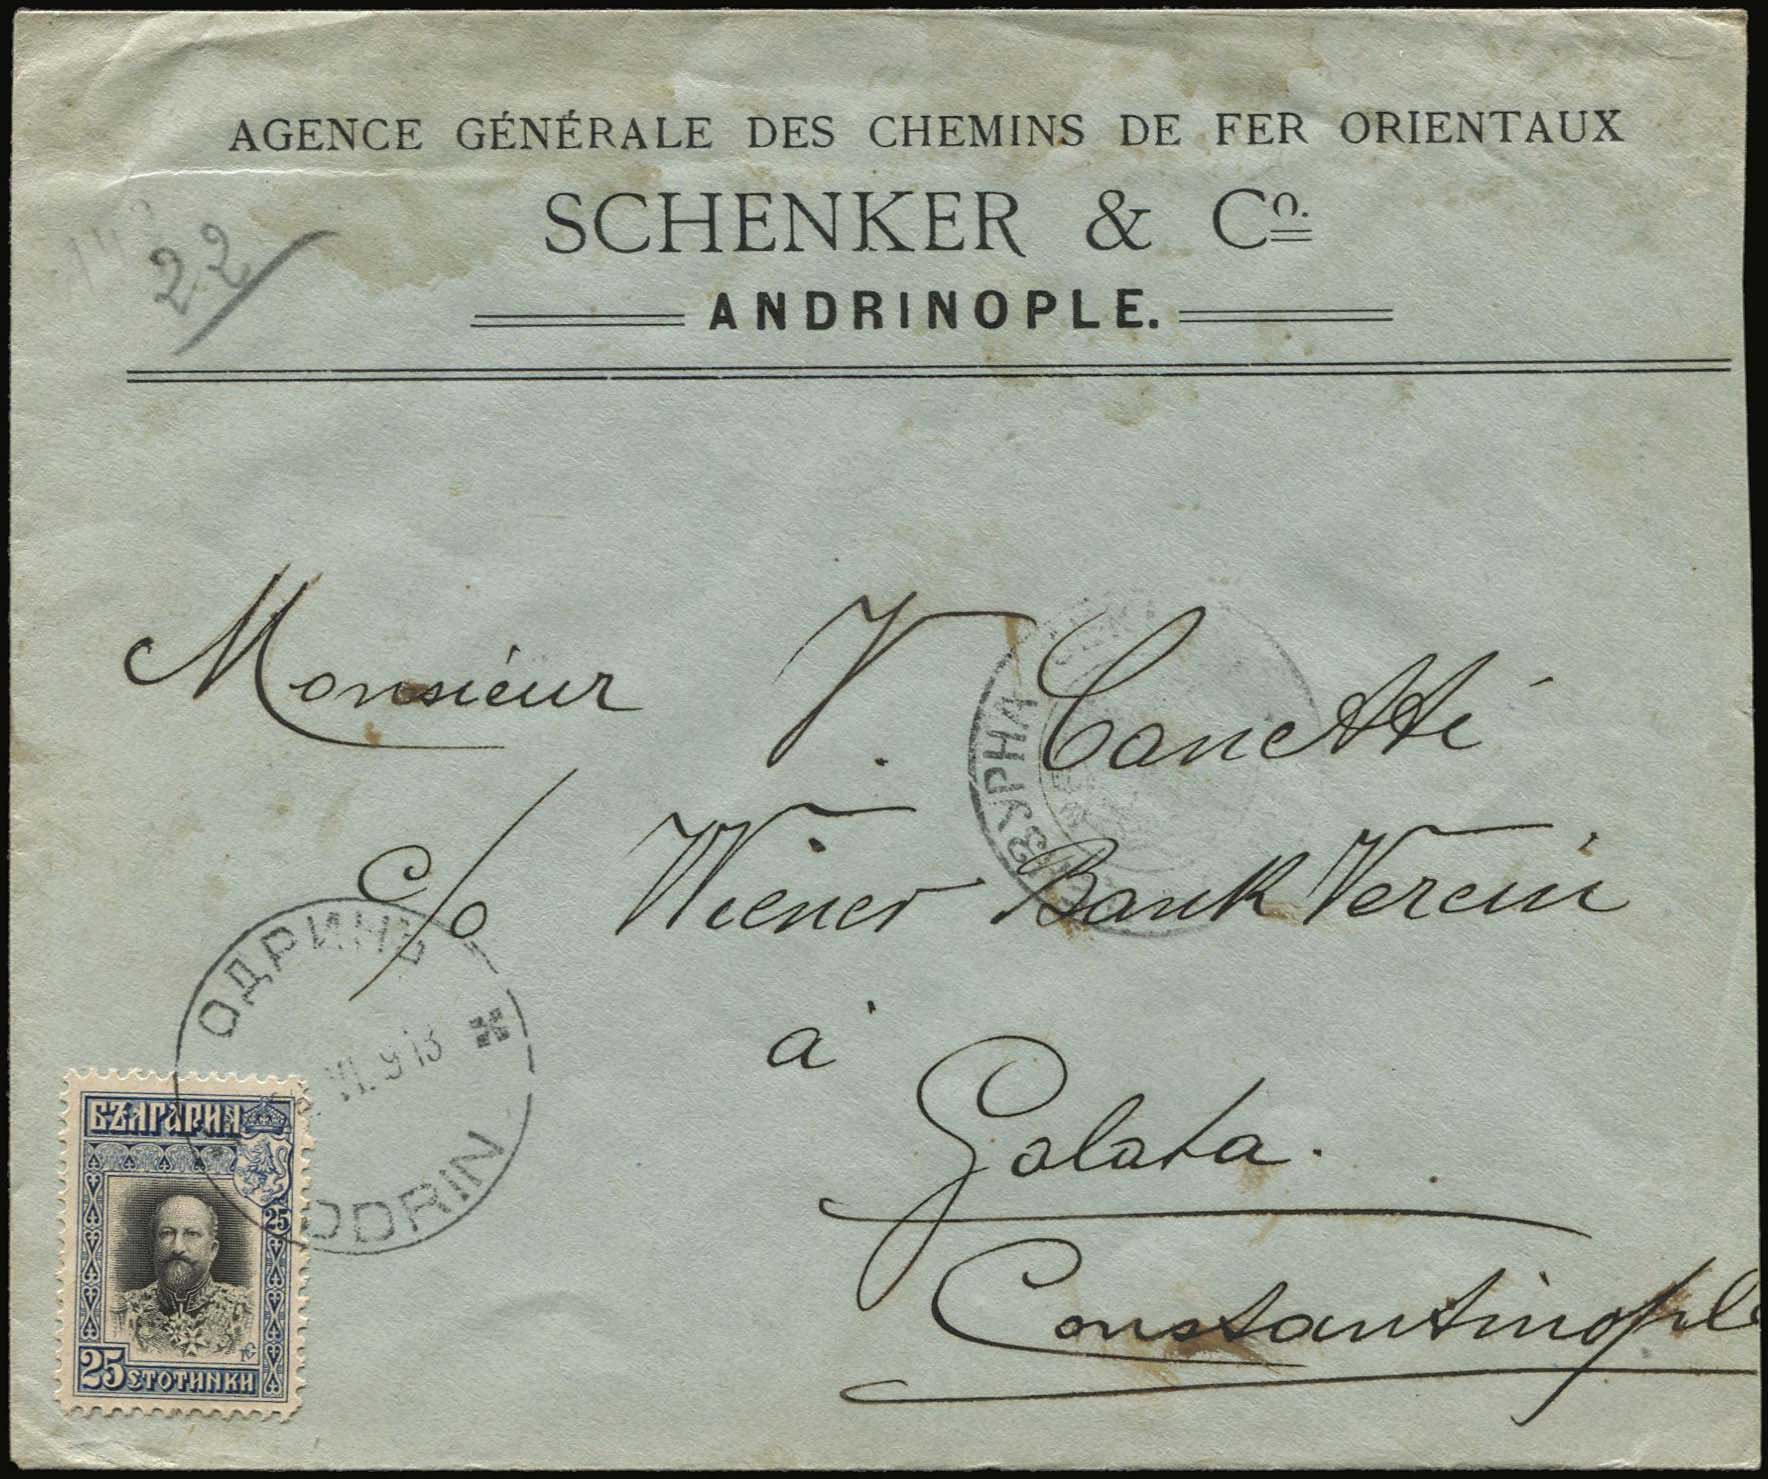 AGENCE GÉNÉRALE DES CHEMINS DE FER ORIENTAUX
SCHENKER & Co.
ANDRINOPLE.
22
Monsieur V. Canetti
c/o Wiener Bank Verein
à
Galata.
Constantinople
ОДРИНЪ
VI. 9 13
ODRIN
БЪЛГАРИЯ
25
25 СТОТИНКИ